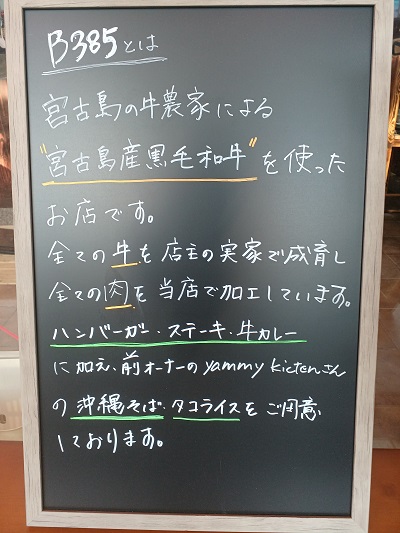 B385とは
宮古島の牛農家による
"宮古島産黒毛和牛"を使った
お店です。
全ての牛を店主の実家で成育し
全ての肉を当店で加工しています。
ハンバーガー・ステーキ・牛カレー
に加え、前オーナーのyammy kictenさん
の沖縄そば・タコライスをご用意
しております。